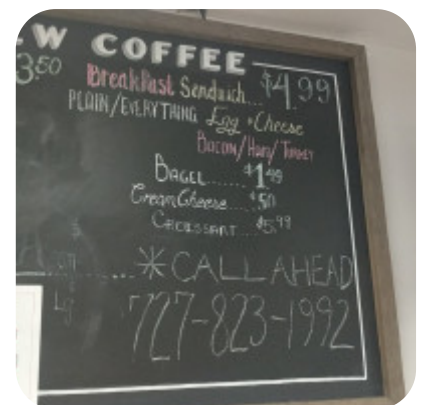 W COFFEE
3.50
Breakfast Sandwich... $4.99
PLAIN/EVERYTHING Egg + Cheese
BACON/HAM/TURKEY
BAGEL........ $1.49
Cream Cheese..... $.50
CROISSANT.... $5.99
...*CALL AHEAD
Lg 727-823-1992